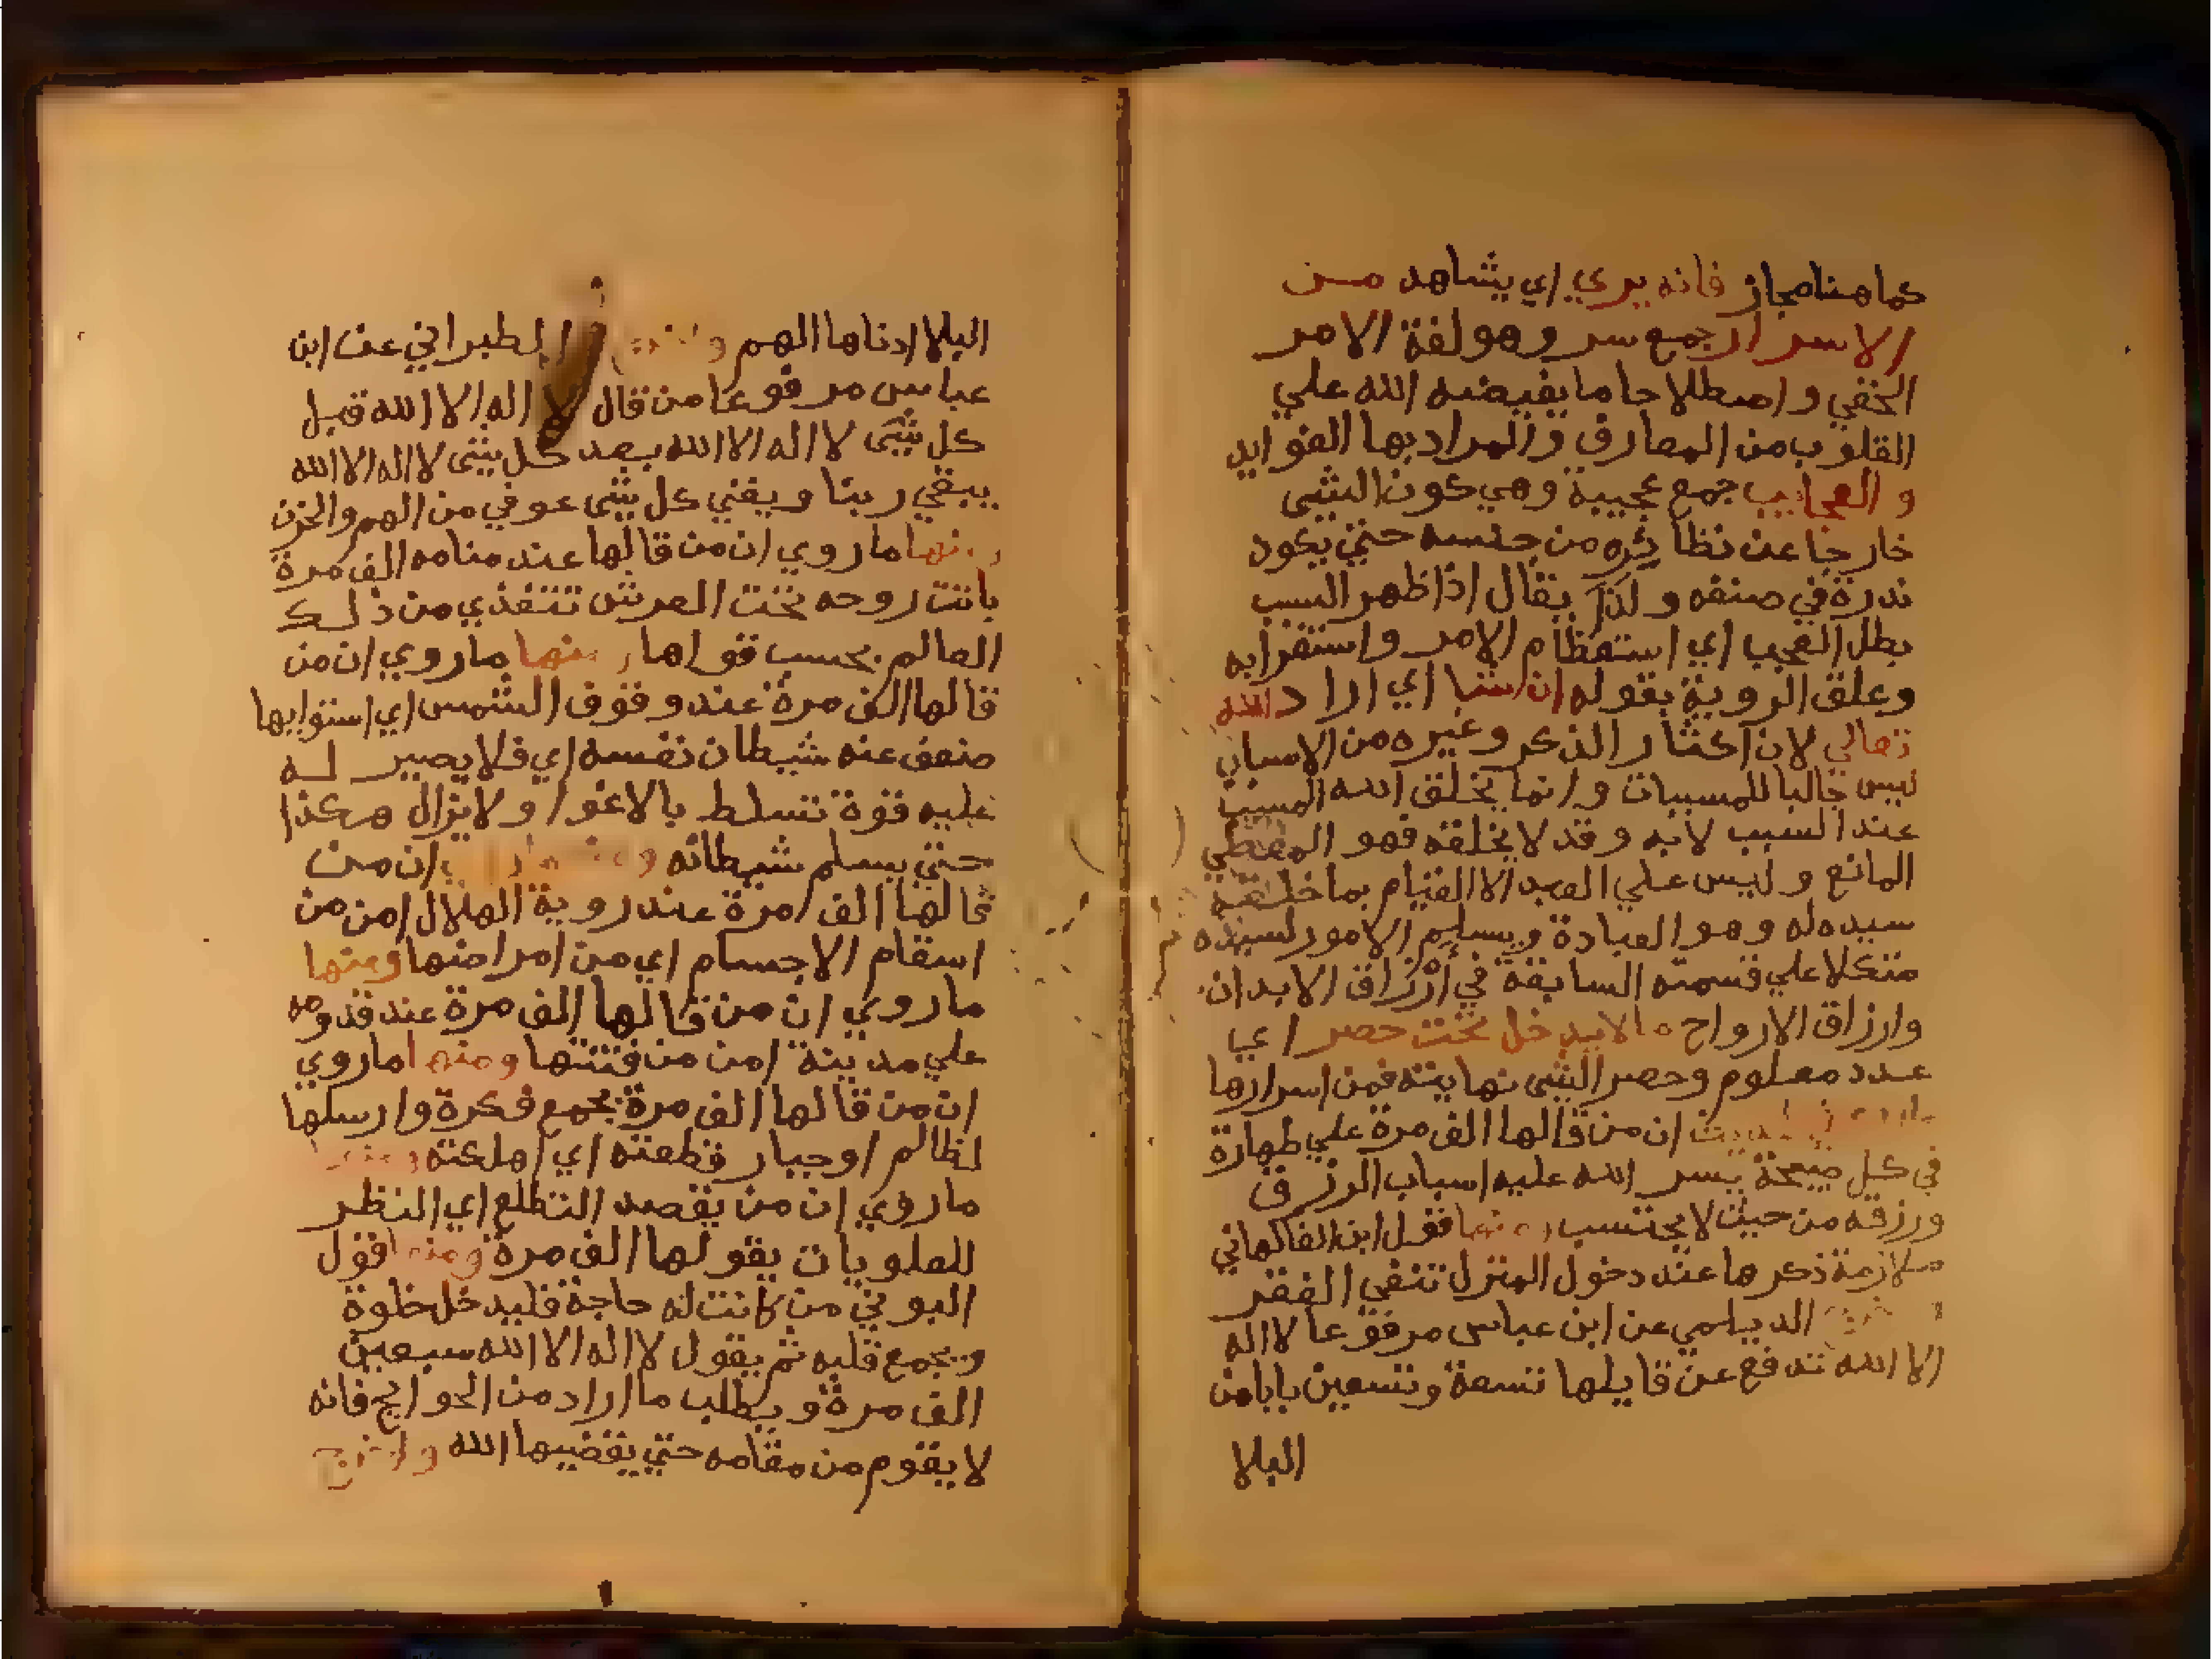 كما هنا مجاز فانه يري اي يشاهد من
الاسرار جمع سر وهو لغة الامر
الخفي واصطلاحا ما يفيضه الله علي
القلوب من المعارف والمراد بها الفوايد
والعجايب جمع عجيبة وهي كون الشى
خارجا عن نظائره من جنسه حتي يكون
ندرة في صنفه ولذا يقال اذا ظهر السبب
بطل العجب اي استعظام الامر واستغرابه
وعلق الروية بقوله ان شا اي اراد الله
تعالي لان اكثار الذكر وغيره من الاسباب
ليس جالبا للمسببات وانما يخلق الله المسبب
عند السبب لا به وقد لا يخلقه فهو المعطي
المانع وليس علي العبد الا القيام بما خلقه
سيده له وهو العبادة ويسلم الامور لسيده
متكلا علي قسمته السابقة في ارزاق الابدان
وارزاق الارواح ما لا يدخل تحت حصر اي
عدد معلوم وحصر الشى نهايته فمن اسرارها
ان من قالها الف مرة علي طهارة
في كل صيحة يسر الله عليه اسباب الرزق
ورزقه من حيث لا يحتسب ومنها قول ابن الفاكهاني
ملازمة ذكرها عند دخول المنزل تنفي الفقر
الديلمي عن ابن عباس مرفوعا لا اله
الا الله تدفع عن قايلها تسعة وتسعين بابا من
البلا
البلا ادناها الهم الطبراني عن ابن
عباس مرفوعا من قال لا اله الا الله قبل
كل شى لا اله الا الله بعد كل شى لا اله الا الله
يبقي ربنا ويفني كل شى عوفي من الهم والحزن
ومنها ما روي ان من قالها عند منامه الف مرة
باتت روحه تحت العرش تتغذي من ذلك
العالم بحسب قواها ومنها ما روي ان من
قالها الف مرة عند وقوف الشمس اي استوايها
ضعف عنه شيطان نفسه اي فلا يصير له
عليه قوة تسلط بالاغوا ولا يزال هكذا
حتي يسلم شيطانه ان من
قالها الف مرة عند روية الهلال امن من
اسقام الاجسام اي من امراضها ومنها
ما روي ان من قالها الف مرة عند قدومه
علي مدينة امن من فتنتها ومنها ما روي
ان من قالها الف مرة بجمع فكرة وارسلها
لظالم او جبار قطعته اي اهلكته ومنها
ما روي ان من يقصد التطلع اي النظر
للعلويات يقولها الف مرة ومنها قول
البوني من كانت له حاجة فليدخل خلوة
ويجمع قلبه ثم يقول لا اله الا الله سبعين
الف مرة ويطلب ما اراد من الحوايج فانه
لا يقوم من مقامه حتي يقضيها الله واخرج